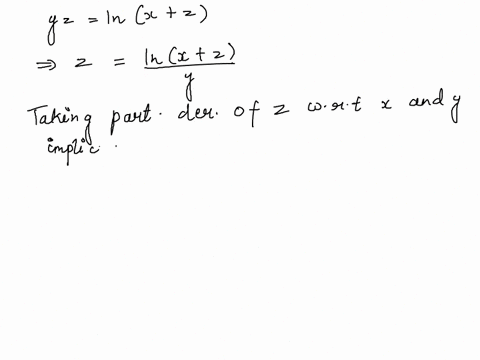 yz = ln (x + z)
⇒ z = ln (x + z) / y
Taking part. der. of z w.r.t x and y
implic.